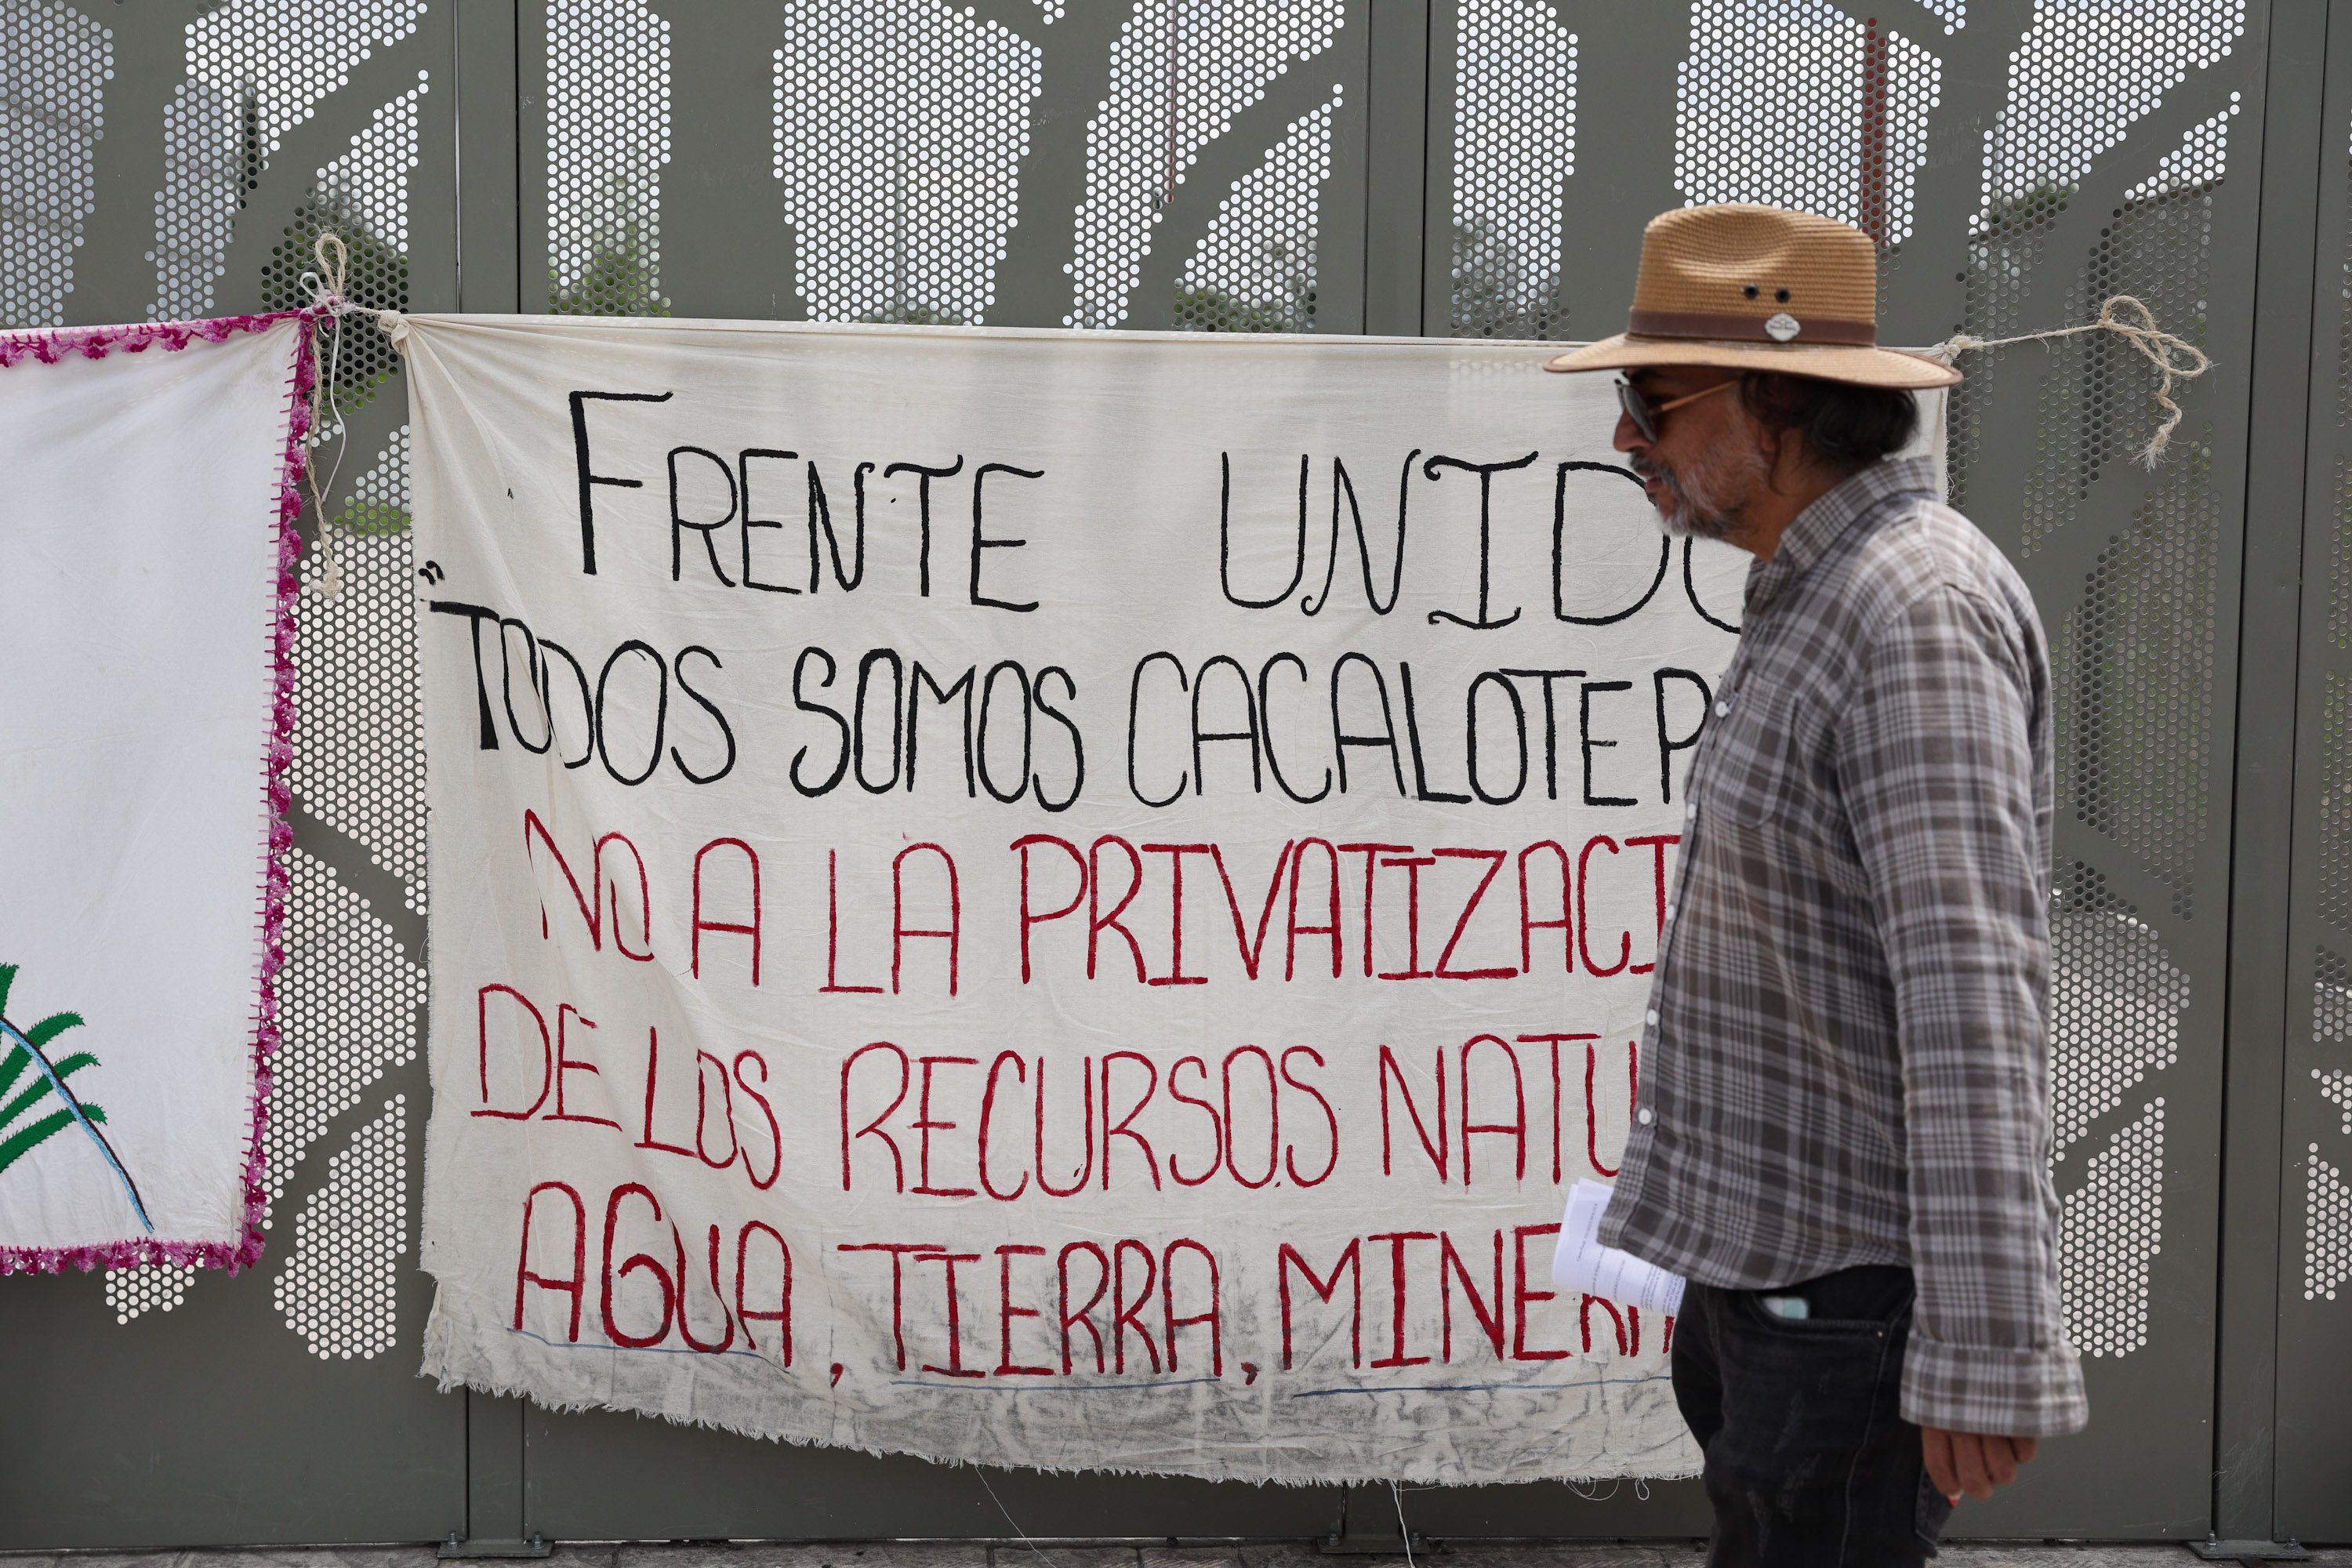 FRENTE UNIDO
"TODOS SOMOS CACALOTEP
NO A LA PRIVATIZACI
DE LOS RECURSOS NATU
AGUA, TIERRA, MINERA